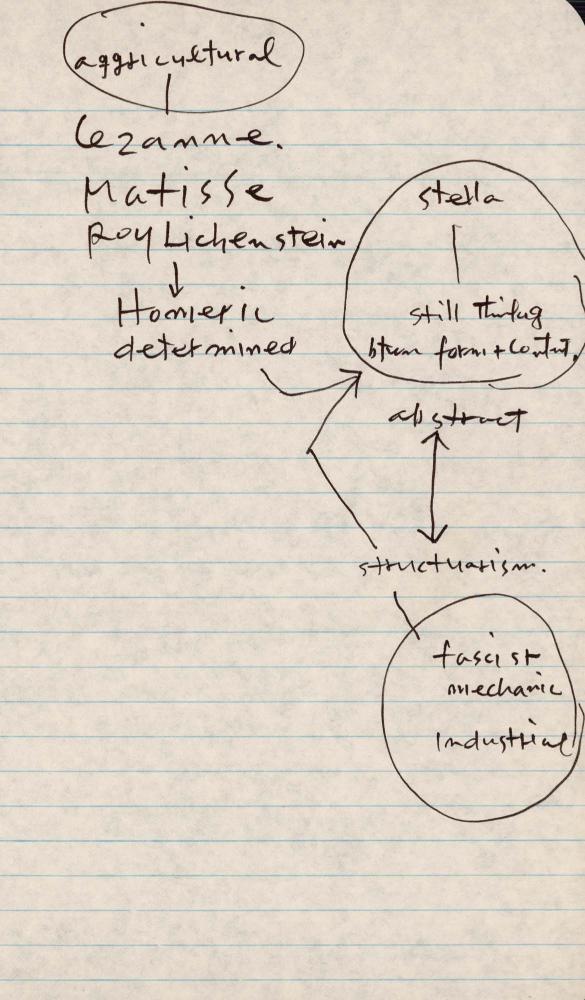 aggricultural
Cezanne.
Matisse
Roy Lichenstein
Homeric
determined
stella
still thinking
btwn form + content.
abstract
structuarism.
fascist
mechanic
Industrial